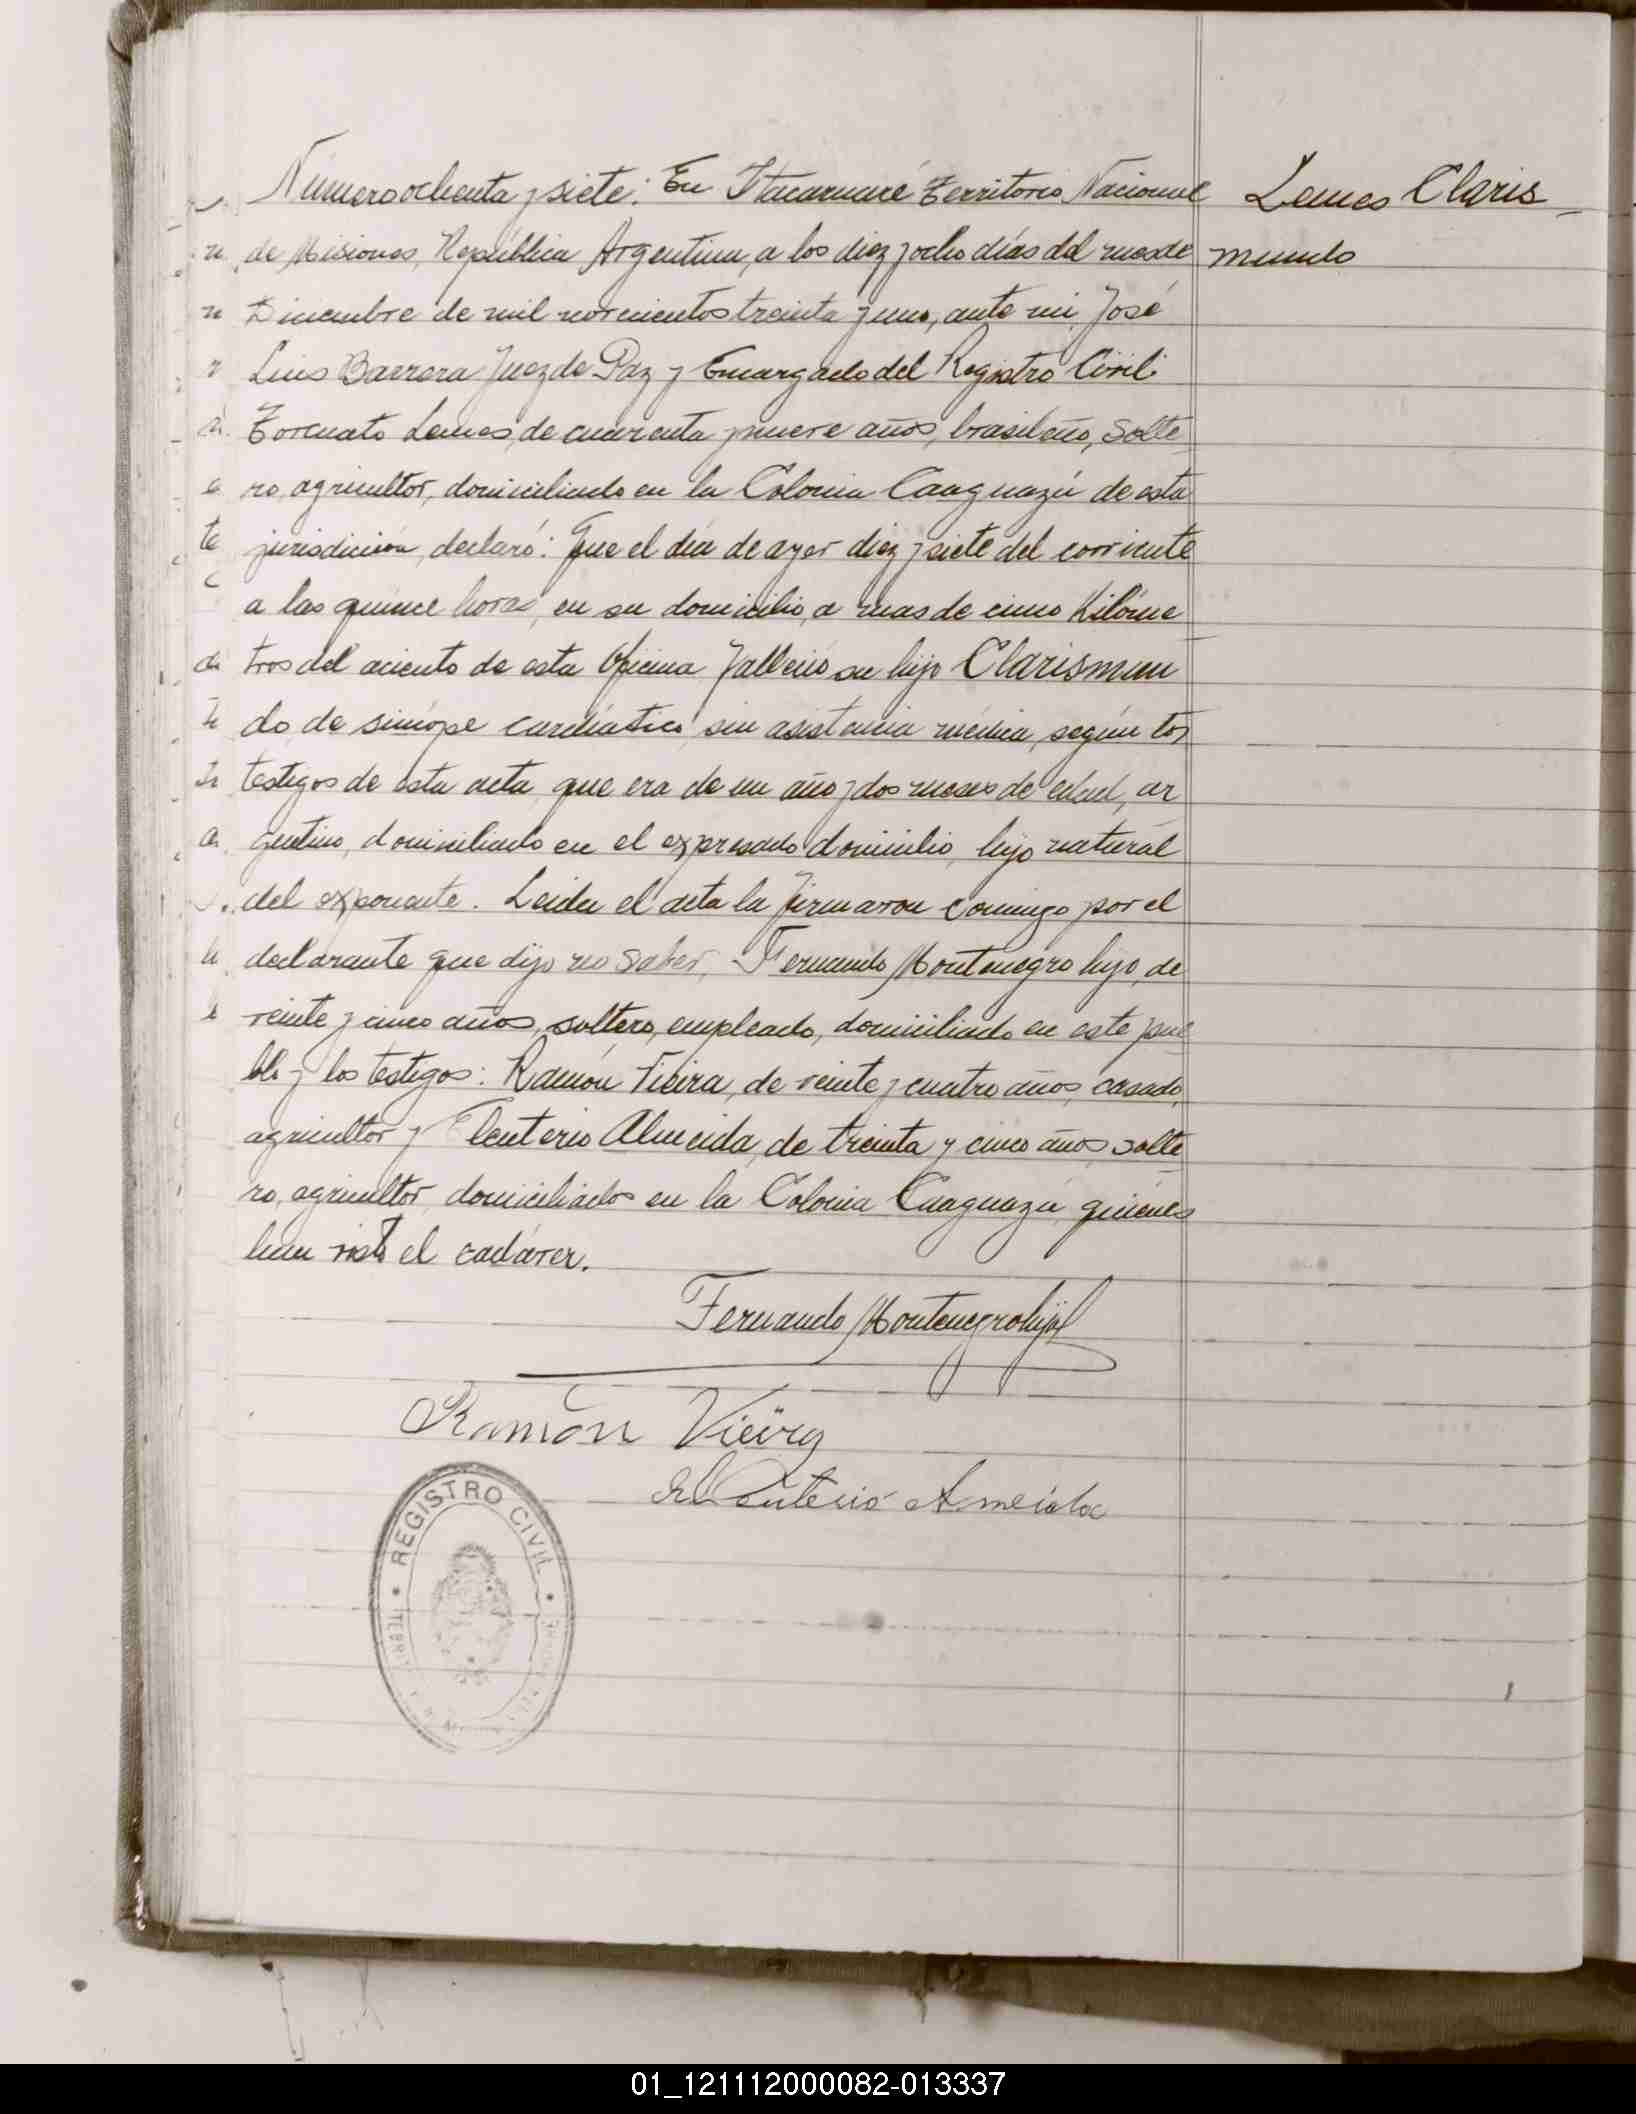 Número ochenta y siete: En Itacaruaré Territorio Nacional
Lemes Claris-
de Misiones, República Argentina, a los diez y ocho días del mes de
mundo
Diciembre de mil novecientos treinta y uno, ante mi José
Luis Barrera Juez de Paz y Encargado del Registro Civil:
Torcuato Lemes, de cuarenta y nueve años, brasileño, solte-
ro, agricultor, domiciliado en la Colonia Caaguazú de esta
jurisdicción, declaró: Que el día de ayer diez y siete del corriente
a las quince horas, en su domicilio, a mas de cinco Kilóme
tros del aciento de esta Oficina falleció su hijo Clarismun
do, de síncope cardíatico, sin asistencia médica, según los
testigos de esta acta, que era de un año y dos meses de edad, ar
gentino, domiciliado en el expresado domicilio, hijo natural
del exponente. Leida el acta la firmaron conmigo por el
declarante que dijo no saber, Fernando Montenegro hijo, de
veinte y cinco años, soltero, empleado, domiciliado en este pue
blo y los testigos: Ramón Vieira, de veinte y cuatro años, casado,
agricultor y Eleuterio Almeida, de treinta y cinco años, solte
ro, agricultor, domiciliados en la Colonia Caaguazú, quiénes
han visto el cadáver.
Fernando Montenegro hijo
Ramón Vieira
Eleuterio Almeida
REGISTRO CIVIL
01_121112000082-013337